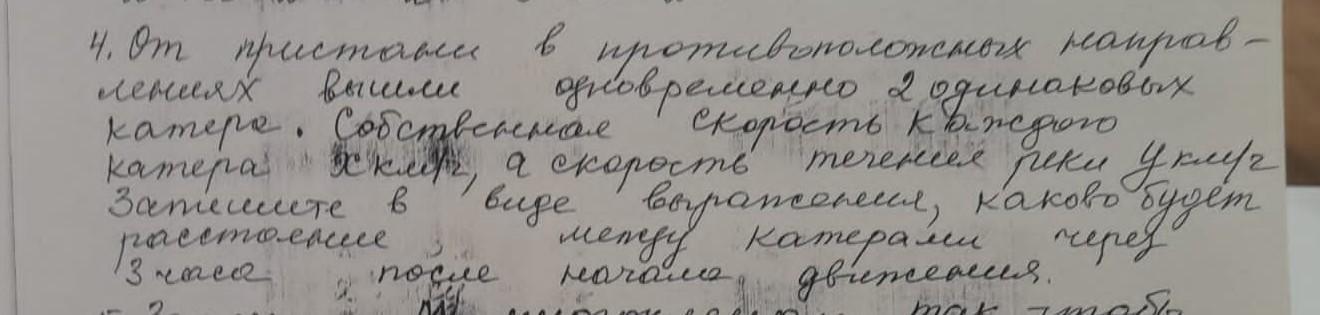 4. От пристани в противоположных направ-
лениях вышли одновременно 2 одинаковых
катера. Собственная скорость каждого
катера x км/ч, а скорость течения реки y км/ч
Запишите в виде выражения, каково будет
расстояние, между катерами через
3 часа после начала движения.
так чтобы